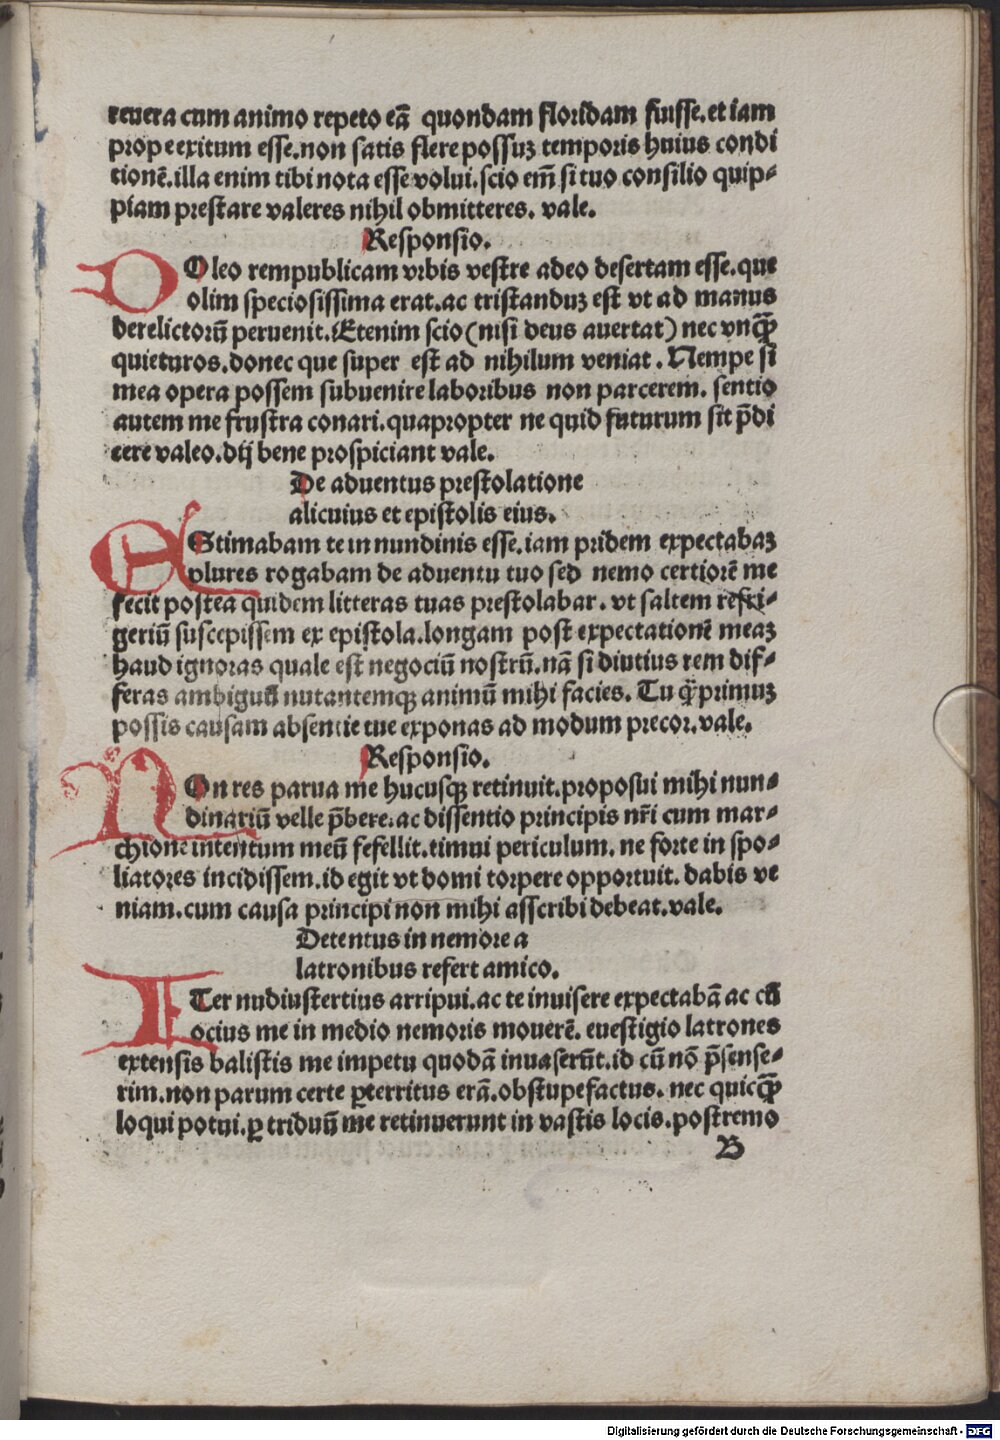 reuera cum animo repeto eā quondam floridam fuisse.et iam
prope exitum esse.non satis flere possuꝫ temporis huius condi
tionē.illa enim tibi nota esse volui.scio em̄ si tuo consilio quip⸗
piam prestare valeres nihil obmitteres. vale.
Responsio.
DOleo rempublicam vrbis vestre adeo desertam esse.que
olim speciosissima erat.ac tristanduꝫ est vt ad manus
derelictorū peruenit.Etenim scio(nisi deus auertat) nec vnqꝫ̄
quieturos.donec que super est ad nihilum veniat. Nempe si
mea opera possem subuenire laboribus non parcerem. sentio
autem me frustra conari.quapropter ne quid futurum sit p̄di
cere valeo.dij bene prospiciant vale.
De aduentus prestolatione
alicuius et epistolis eius.
EStimabam te in nundinis esse.iam pridem expectabaꝫ
plures rogabam de aduentu tuo sed nemo certiorē me
fecit postea quidem litteras tuas prestolabar. vt saltem refri⸗
geriū suscepissem ex epistola.longam post expectationē meaꝫ
haud ignoras quale est negociū nostrū.nā si diutius rem dif⸗
feras ambiguū nutantemqꝫ animū mihi facies. Tu qꝫ̄primuꝫ
possis causam absentie tue exponas ad modum precor.vale.
Responsio.
NOn res parua me hucusqꝫ retinuit.proposui mihi nun⸗
dinariū velle p̄bere.ac dissentio principis nr̄i cum mar⸗
chione intentum meū fefellit.timui periculum. ne forte in spo⸗
liatores incidissem.id egit vt domi torpere opportuit. dabis ve
niam.cum causa principi non mihi asscribi debeat.vale.
Detentus in nemore a
latronibus refert amico.
ITer nudiustertius arripui.ac te inuisere expectabā ac cū
ocius me in medio nemoris mouerē. euestigio latrones
extensis balistis me impetu quodā inuaserūt.id cū nō p̄sense⸗
rim.non parum certe ꝑterritus erā.obstupefactus. nec quicqꝫ̄
loqui potui.ꝑ triduū me retinuerunt in vastis locis.postremo
B
Digitalisierung gefördert durch die Deutsche Forschungsgemeinschaft - DFG